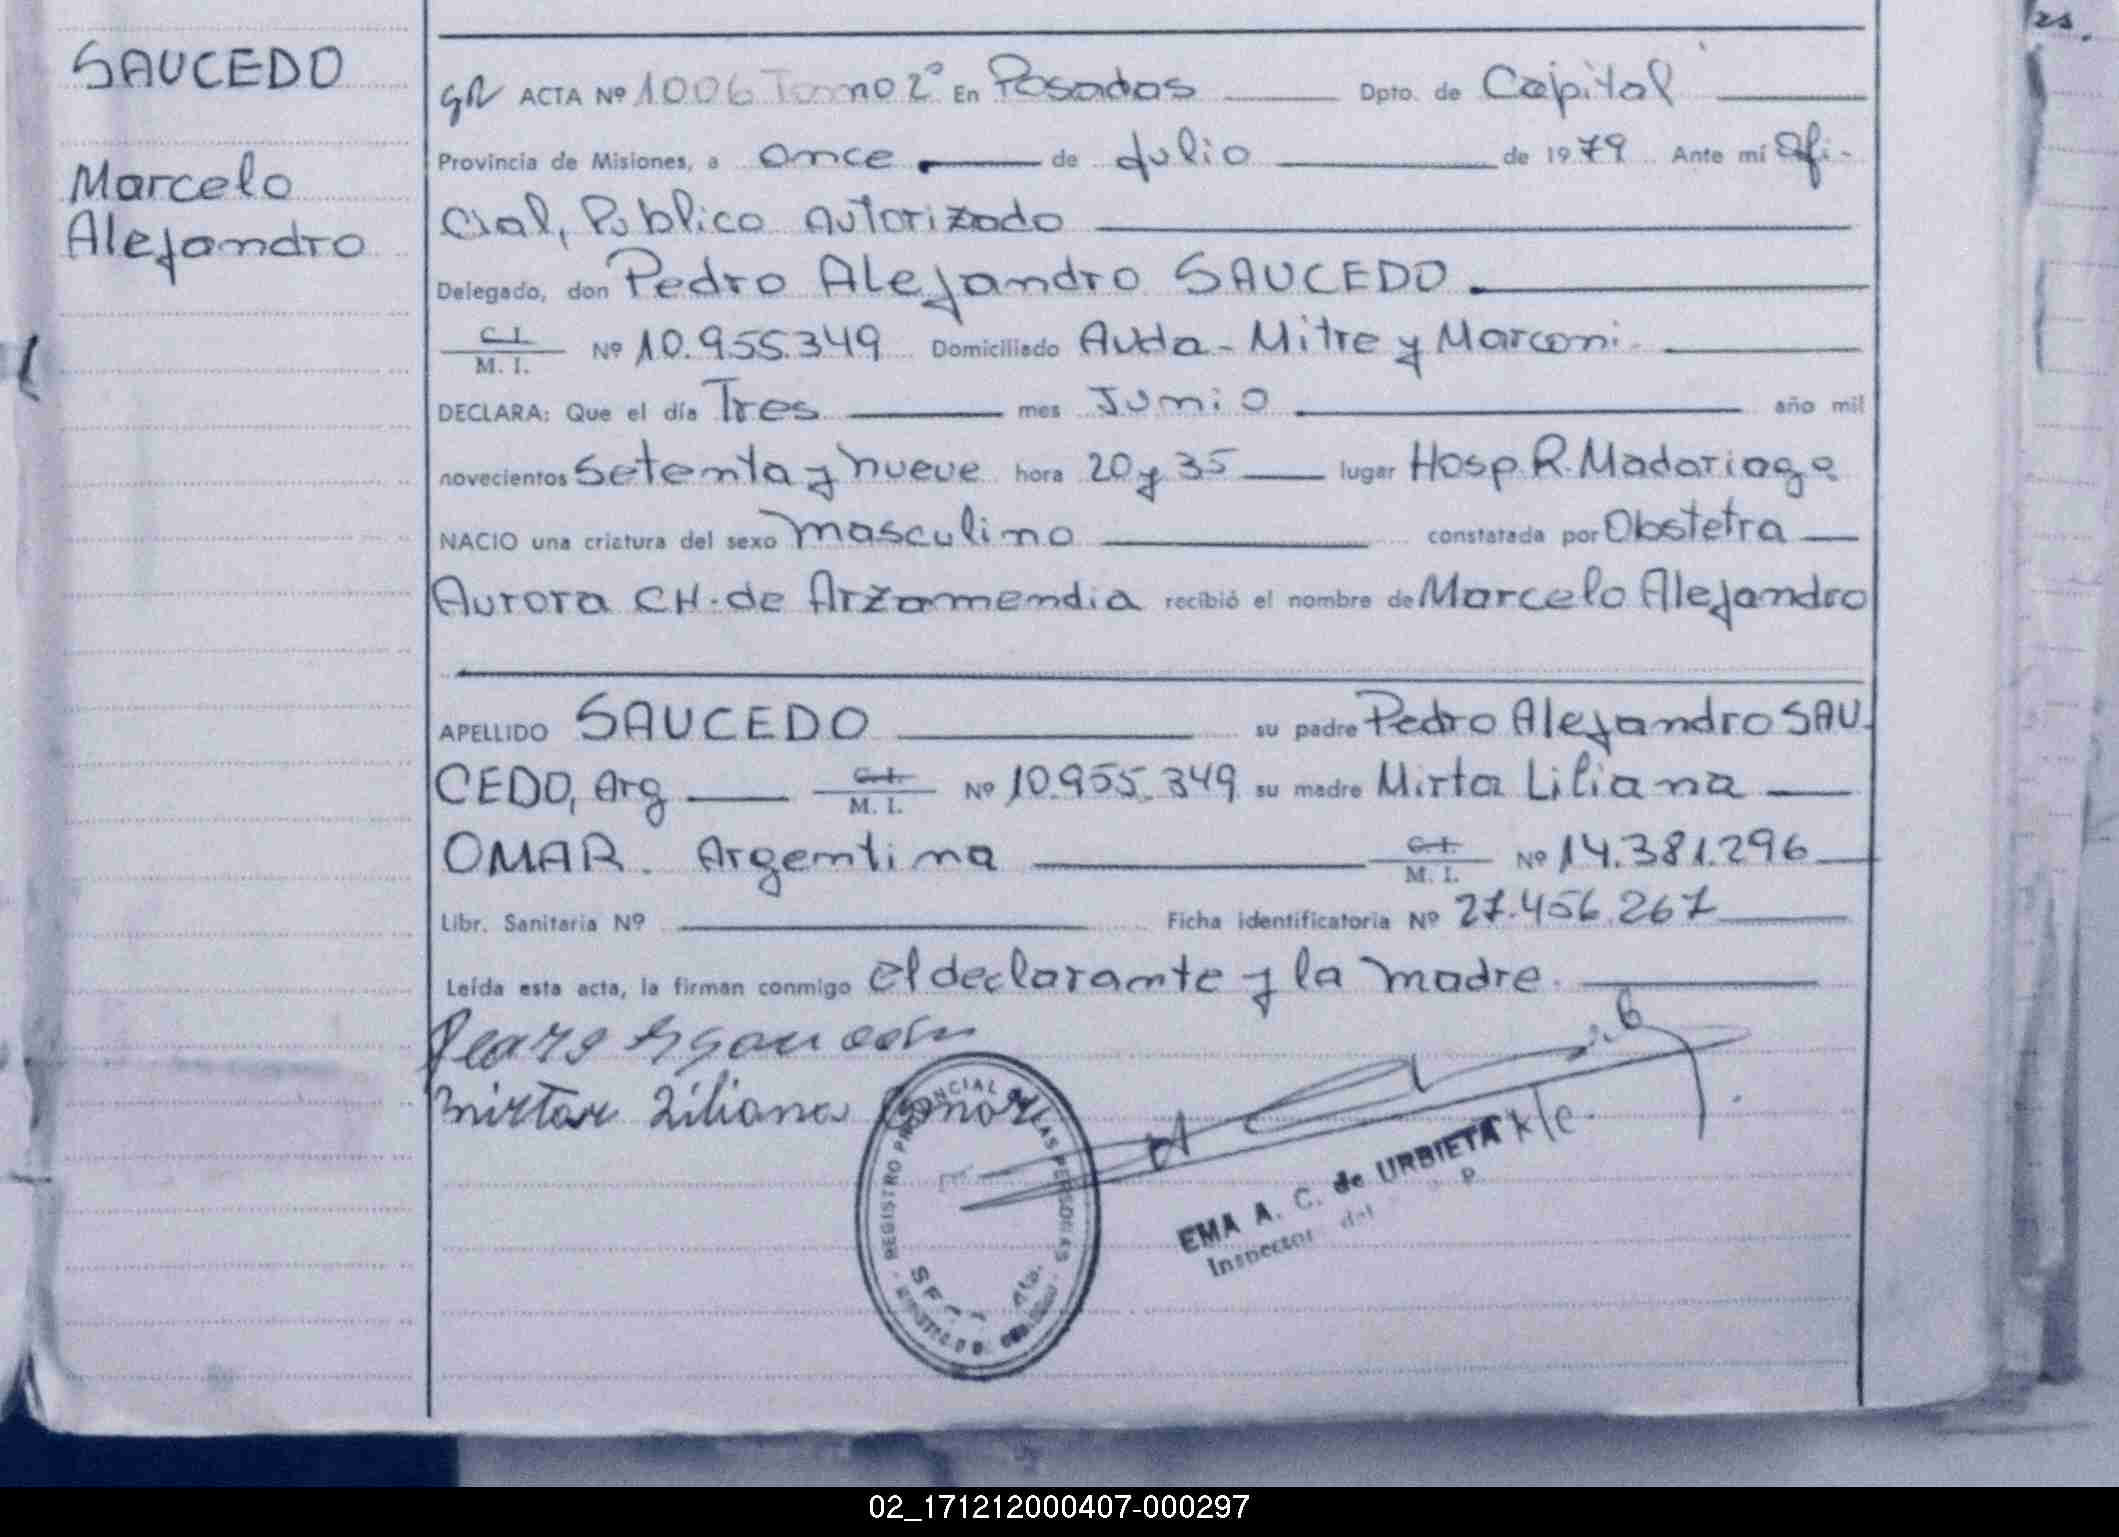 SAUCEDO
Marcelo
Alejandro
ACTA Nº 1006 Tomo 2º En Posadas Dpto. de Capital
Provincia de Misiones, a once de Julio de 1979 Ante mí Ofi-
cial, Publico Autorizado
Delegado, don Pedro Alejandro SAUCEDO
C. I. / M. I. Nº 10.955.349 Domiciliado Avda - Mitre y Marconi
DECLARA: Que el día Tres mes Junio año mil
novecientos Setenta y nueve hora 20 y 35 lugar Hosp. R. Madariaga
NACIO una criatura del sexo masculino constatada por Obstetra
Aurora CH. de Arzamendia recibió el nombre de Marcelo Alejandro
APELLIDO SAUCEDO su padre Pedro Alejandro SAU-
CEDO, Arg C. I. / M. I. Nº 10.955.349 su madre Mirta Liliana
OMAR. Argentina C. I. / M. I. Nº 14.381.296
Libr. Sanitaria Nº Ficha identificatoria Nº 27.456.267
Leída esta acta, la firman conmigo el declarante y la madre.
Mirta Liliana Omar
REGISTRO PROVINCIAL DE LAS PERSONAS
EMA A. C. de URBIETA
Inspector del
02_171212000407-000297